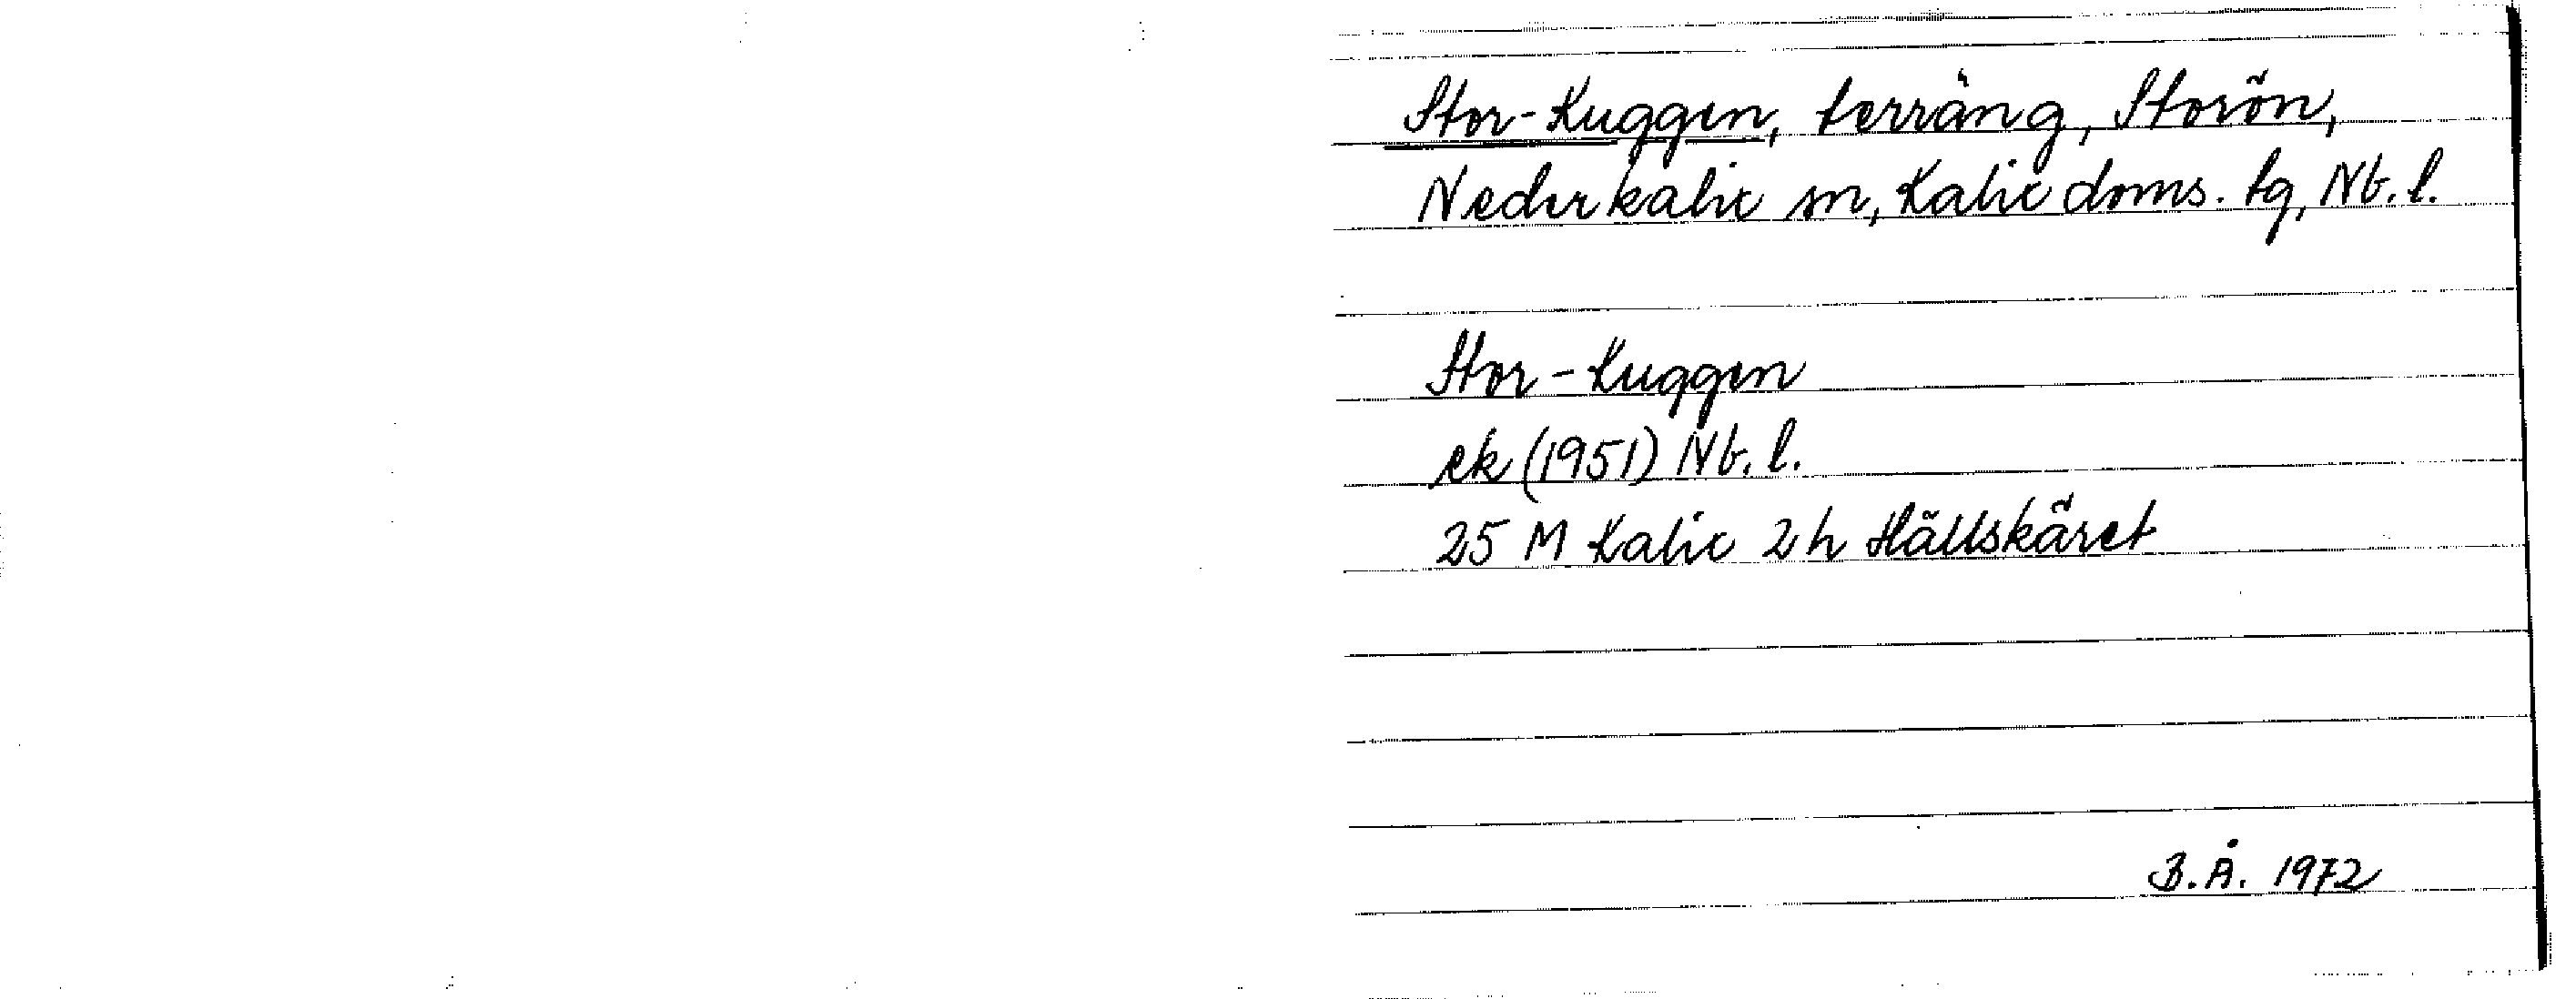 Stor-Kuggen, terräng, Storön,
Nederkalix sn, Kalix doms. tg, Nb. l.
Stor-Kuggen
ek (1951) Nb. l.
25 M Kalix 2 h Hällskäret
B.Å. 1972